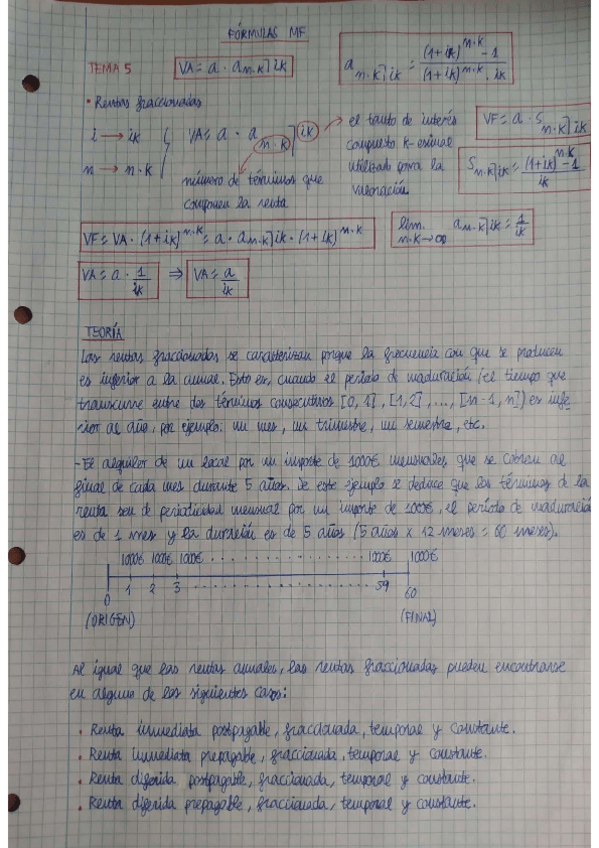 FÓRMULAS MF
TEMA 5
VA = a · a n·k⌉ik
a n·k⌉ik = ((1+ik)^n·k - 1) / ((1+ik)^n·k · ik)
• Rentas fraccionadas
i → ik
n → n·k
VA = a · a n·k⌉ik
número de términos que
componen la renta
el tanto de interés
compuesto k-esimal
utilizado para la
valoración
VF = a · S n·k⌉ik
S n·k⌉ik = ((1+ik)^n·k - 1) / ik
VF = VA · (1+ik)^n·k = a · a n·k⌉ik · (1+ik)^n·k
lim. n·k→∞ a n·k⌉ik = 1/ik
VA = a · 1/ik ⇒ VA = a/ik
TEORÍA
Las rentas fraccionadas se caracterizan porque la frecuencia con que se producen
es inferior a la anual. Esto es, cuando el período de maduración (el tiempo que
transcurre entre dos términos consecutivos [0,1], [1,2], ..., [n-1, n]) es infe-
rior al año, por ejemplo: un mes, un trimestre, un semestre, etc.
-El alquiler de un local por un importe de 1000€ mensuales que se cobran al
final de cada mes durante 5 años. De este ejemplo se deduce que los términos de la
renta son de periodicidad mensual por un importe de 1000€, el período de maduración
es de 1 mes y la duración es de 5 años (5 años x 12 meses = 60 meses).
1000€ 1000€ 1000€ ............ 1000€ 1000€
0 1 2 3 ............ 59 60
(ORIGEN) (FINAL)
Al igual que las rentas anuales, las rentas fraccionadas pueden encontrarse
en alguno de los siguientes casos:
• Renta inmediata postpagable, fraccionada, temporal y constante.
• Renta inmediata prepagable, fraccionada, temporal y constante.
• Renta diferida postpagable, fraccionada, temporal y constante.
• Renta diferida prepagable, fraccionada, temporal y constante.